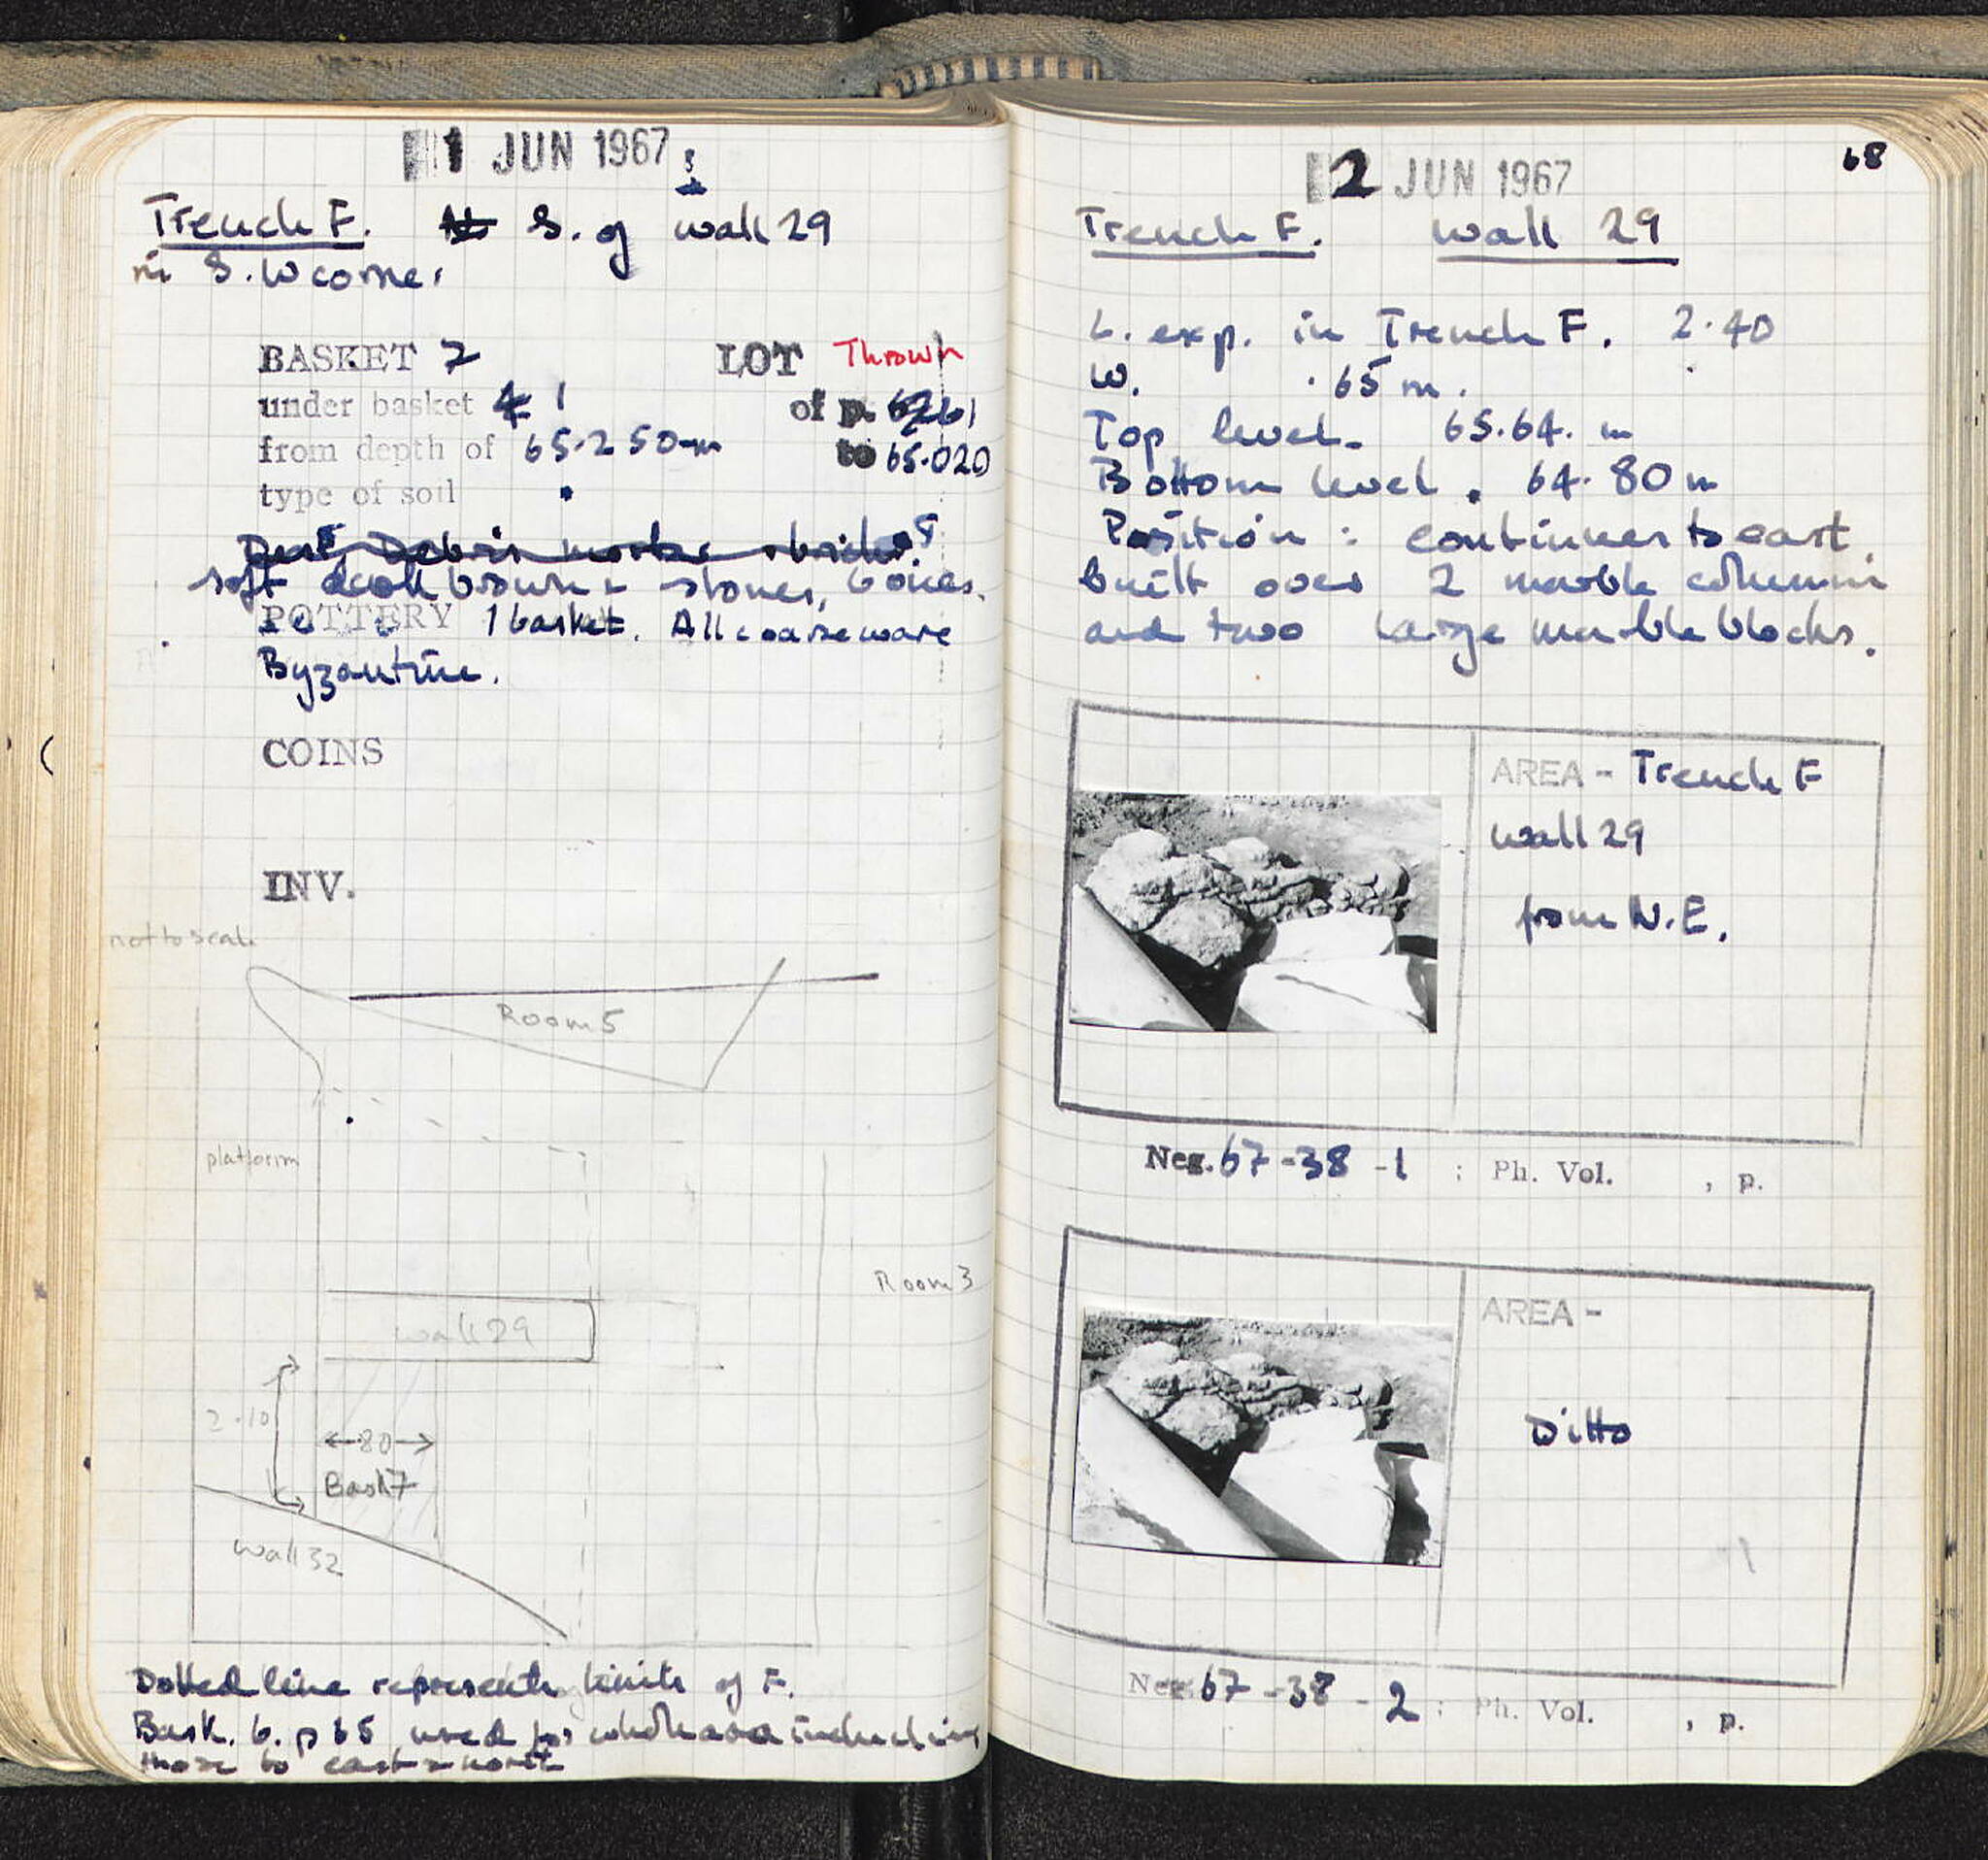 1 JUN 1967
Trench F. S. of wall 29
in S.W corner
BASKET 7 LOT Thrown
under basket 1 of p. 61
from depth of 65.250m to 65.020
type of soil
soft dark brown + stones, bones.
POTTERY 1 basket. All coarse ware
Byzantine.
COINS
INV.
not to scale
Room 5
platform
Room 3
wall 29
2.10
80
Bask 7
wall 32
Dotted line represents limits of F.
Bask. 6. p 65 used for whole area including
those to east & north
68
2 JUN 1967
Trench F. Wall 29
L. exp. in Trench F. 2.40
W. .65 m.
Top level. 65.64. m
Bottom level. 64.80 m
Position : continues to east.
built over 2 marble columns
and two large marble blocks.
AREA - Trench F
wall 29
from N.E.
Neg. 67-38-1 : Ph. Vol. , p.
AREA -
Ditto
Neg. 67-38-2 : Ph. Vol. , p.